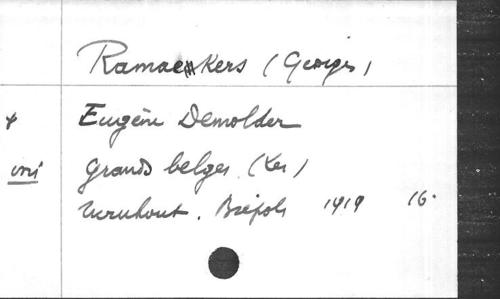 Ramaekers (Georges)
+ Eugène Demolder
Grands belges (Les)
Turnhout. Brépols 1919 16°